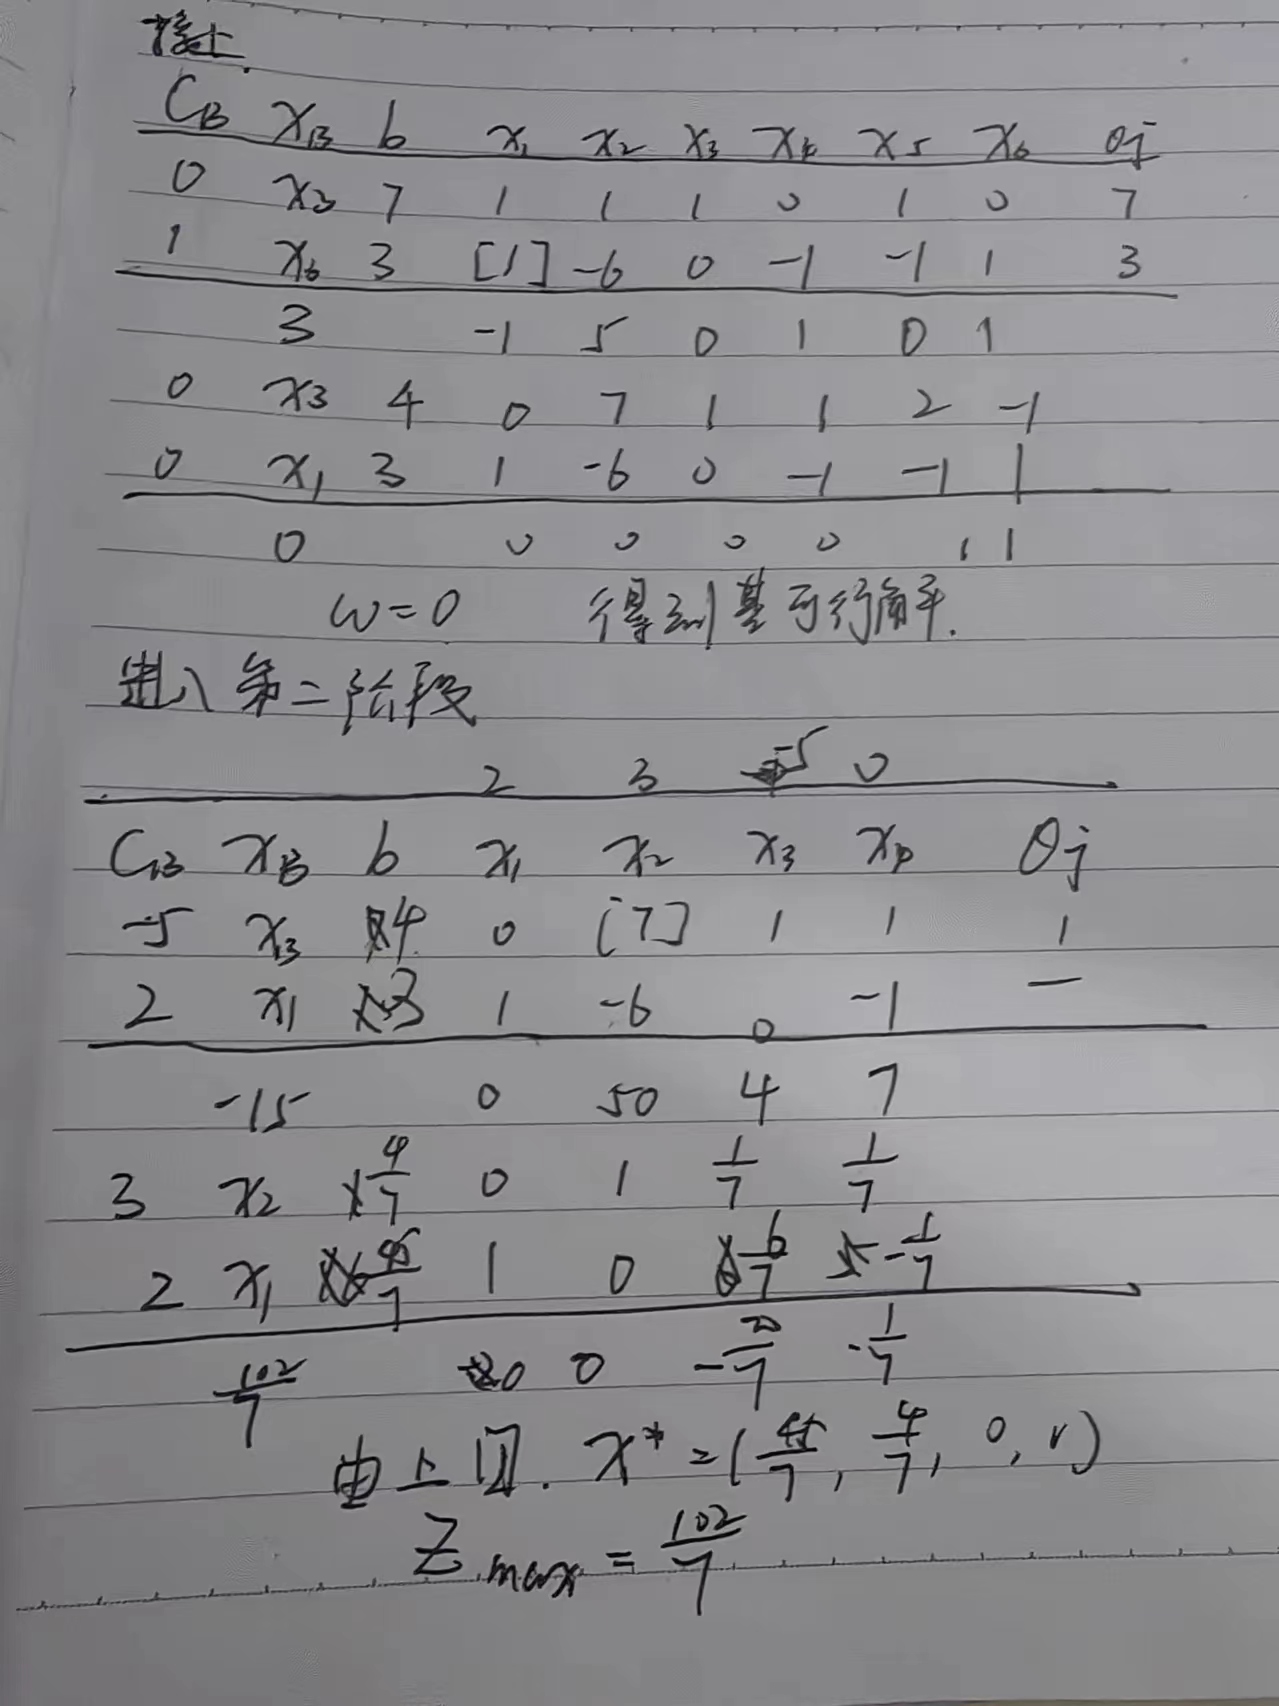 接上.
C_B X_B b x₁ x₂ x₃ x₄ x₅ x₆ θj
0 x₃ 7 1 1 1 0 1 0 7
1 x₆ 3 [1] -6 0 -1 -1 1 3
3 -1 5 0 1 0 1
0 x₃ 4 0 7 1 1 2 -1
0 x₁ 3 1 -6 0 -1 -1 1
0 0 0 0 0 1 1
w=0 得到基可行解.
进入第二阶段
2 3 -5 0
C_B X_B b x₁ x₂ x₃ x₄ θj
-5 x₃ 4 0 [7] 1 1 1
2 x₁ 3 1 -6 0 -1 —
-15 0 50 4 7
3 x₂ 4/7 0 1 1/7 1/7
2 x₁ 45/7 1 0 6/7 -1/7
102/7 0 0 - /7 -1/7
由上 . X*=(45/7, 4/7, 0, 0)
Z max = 102/7